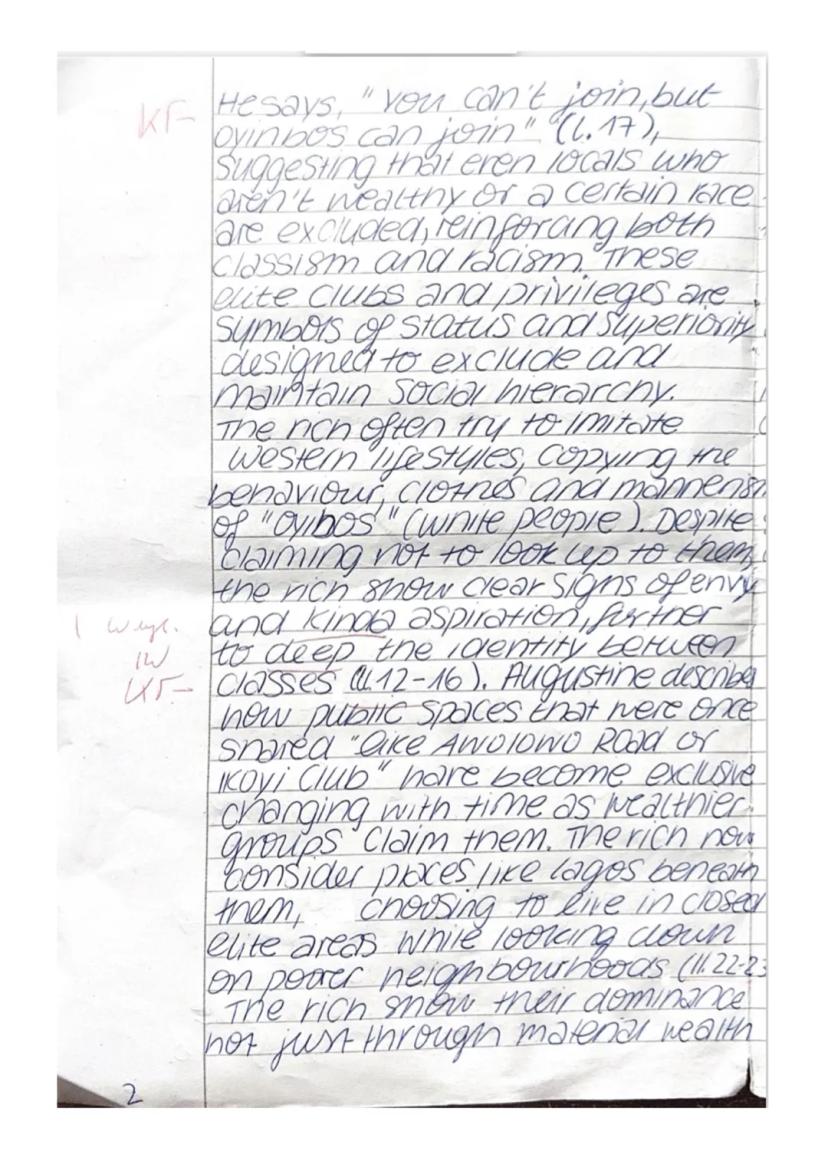 KF
He says, "You can't join, but
oyinbos can join" (l. 17),
suggesting that even locals who
aren't wealthy or a certain race
are excluded, reinforcing both
classism and racism. These
elite clubs and privileges are
symbols of status and superiority
designed to exclude and
maintain social hierarchy.
The rich often try to imitate
western lifestyles, copying the
behaviour, clothes and mannerism
of "oyibos" (white people). Despite
claiming not to look up to them,
the rich show clear signs of envy
and kinda aspiration, further
to deep the identity between
classes (ll. 12-16). Augustine describes
how public spaces that were once
shared "like Awolowo Road or
Ikoyi Club" have become exclusive
changing with time as wealthier
groups claim them. The rich now
consider places like Lagos beneath
them, choosing to live in closed
elite areas while looking down
on poorer neighbourhoods (ll. 22-23
The rich show their dominance
not just through material wealth
2